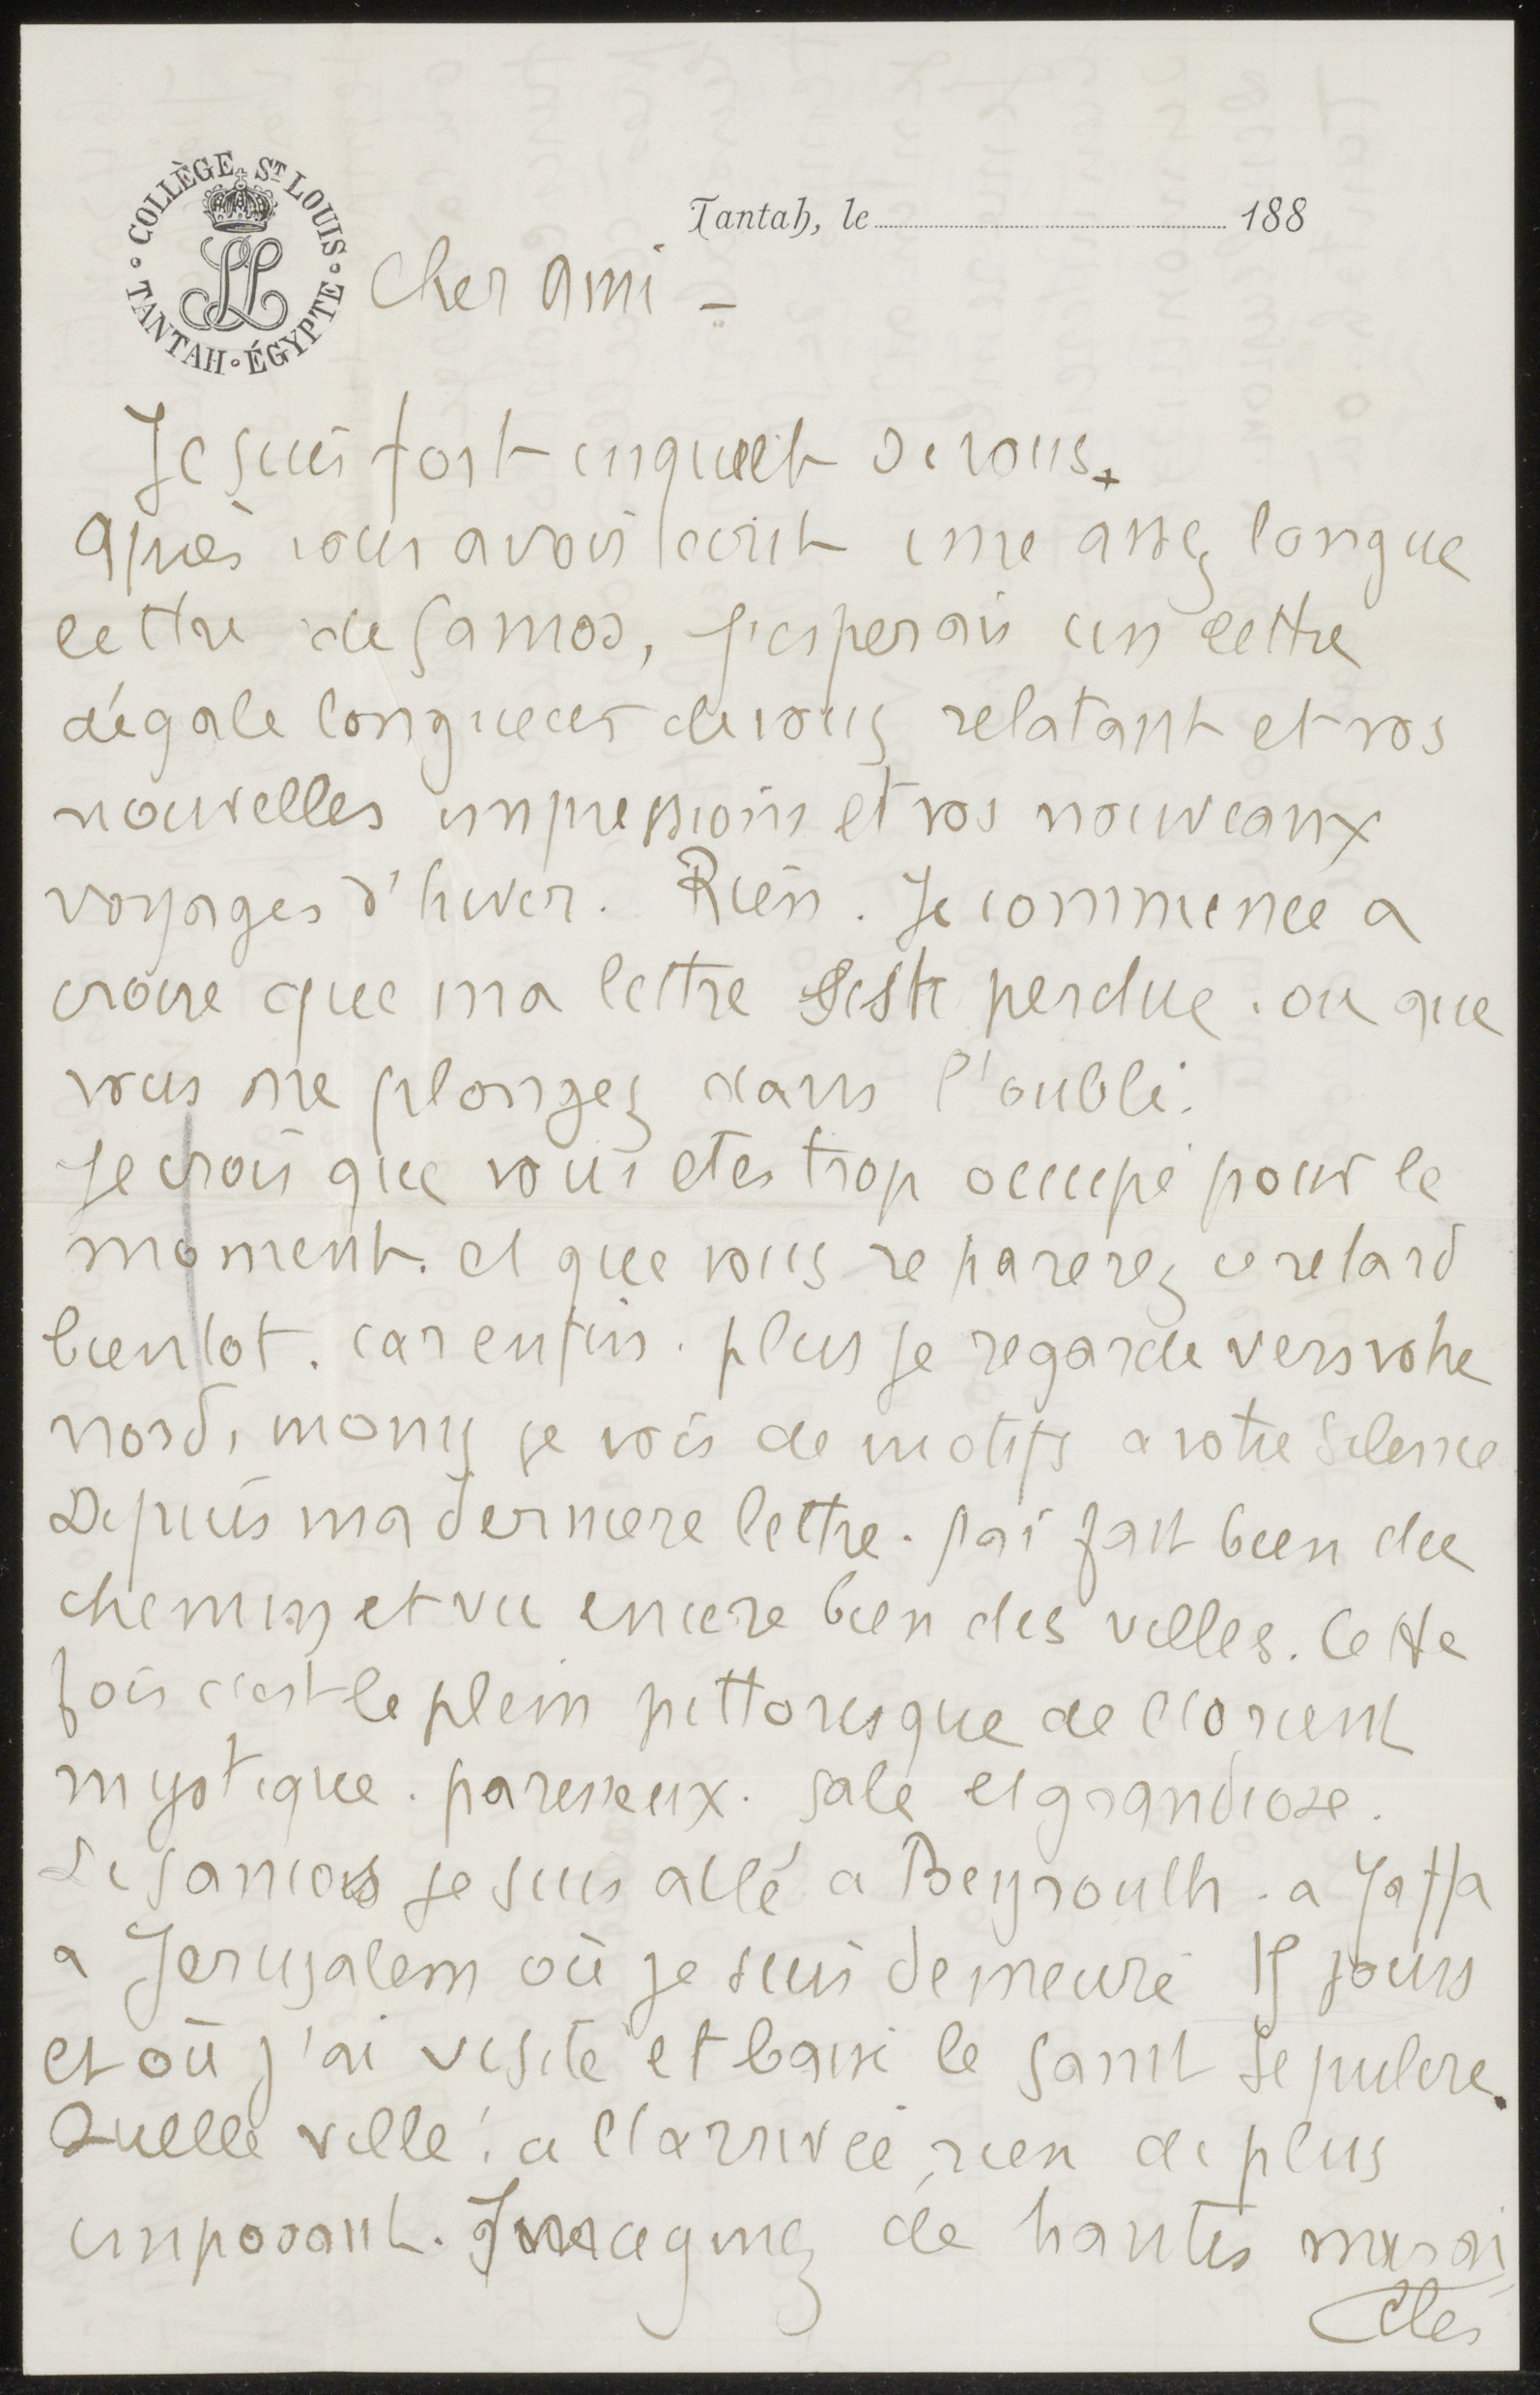 COLLÈGE ST LOUIS
TANTAH ÉGYPTE
Tantah, le 188
Cher Ami –
Je suis fort inquiet de vous.
Après vous avoir ecrit une assez longue
lettre de Samos, j'esperais un lettre
d'égale longueur de vous relatant et vos
nouvelles impressions et vos nouveaux
voyages d'hiver. Rien. Je commence a
croire que ma lettre s'est perdue. ou que
vous me plongez dans l'oubli.
Je crois que vous etes trop occupé pour le
moment. et que vous reparerez ce retard
bientot. car enfin. plus je regarde vers votre
nord, moins je vois de motifs a votre silence
Depuis ma derniere lettre. j'ai fait bien du
chemin et vu encore bien des villes. Cette
fois c'est le plein pittoresque de l'orient
mystique. paresseux. sale et grandiose.
De Samos je suis allé a Beyrouth. a Jaffa
a Jerusalem où je suis demeuré 15 jours
et où j'ai visité et baisé le Saint Sepulcre.
Quelle ville! a l'arrivée, rien de plus
imposant. Imaginez de hautes murai
lles